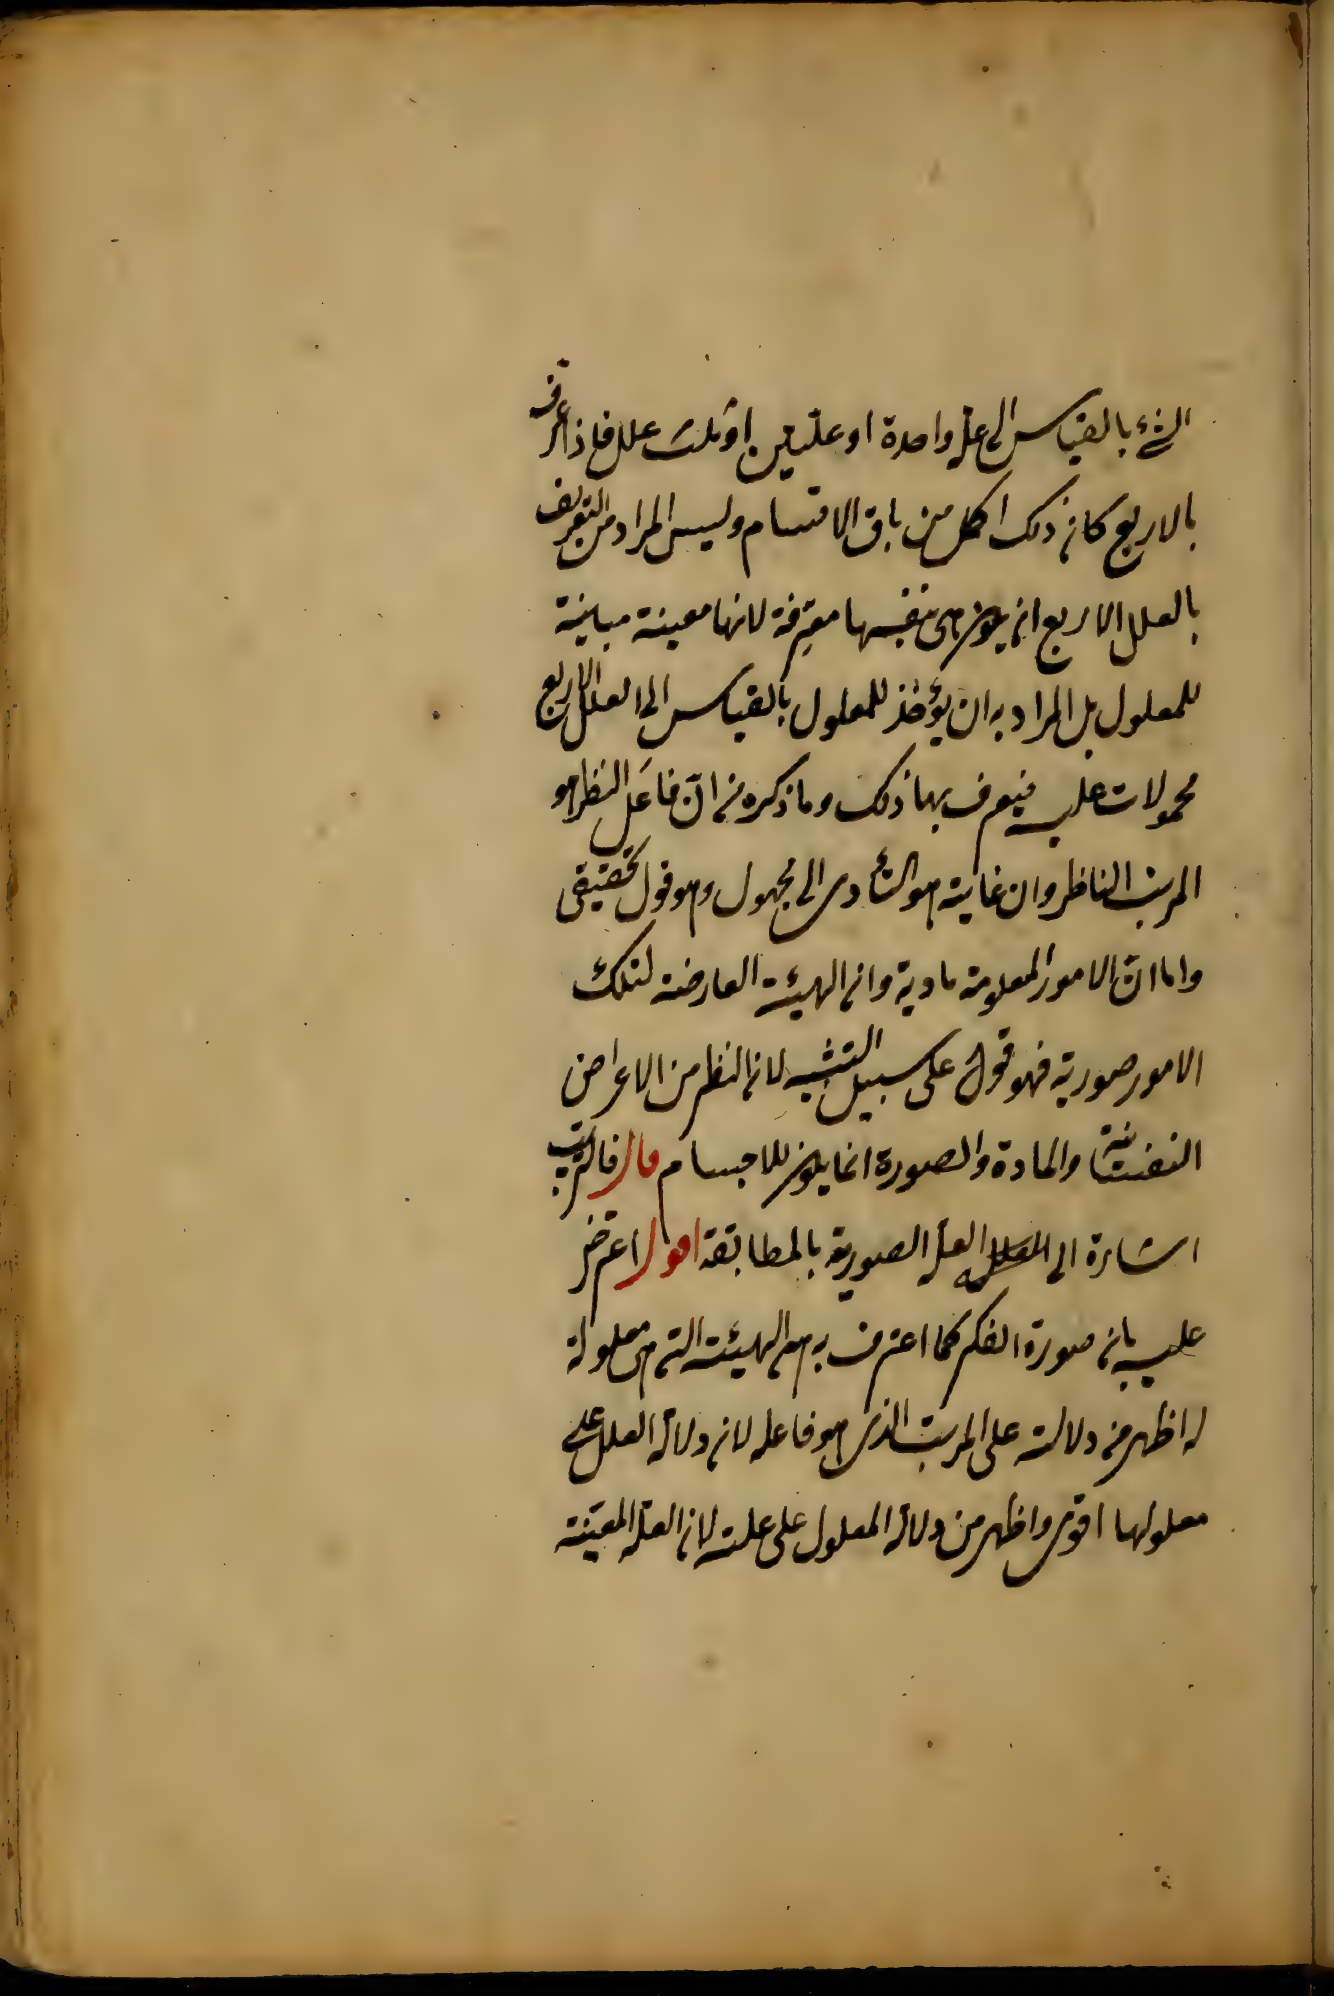 الشئ بالقياس الى علة واحدة او علتين او ثلث علل فاذا عرف
بالاربع كان ذلك اكمل من باقى الاقسام وليس المراد من التعريف
بالعلل الاربع ان يكون هى بنفسها معرّفة لانها معينة مباينة
للمعلول بل المراد به ان يؤخذ للمعلول بالقياس الى العلل الاربع
محمولات عليه فيعرف بها ذلك وما ذكره من انّ فاعل النظر هو
المرتب الناظر وان غايته هو التأدى الى مجهول وهو قول تحقيقى
واما ان الامور المعلومة مادية وان الهيئة العارضة لتلك
الامور صورية فهو قول على سبيل التشبيه لان النظر من الاعراض
النفسانية والمادة والصورة انما يكون للاجسام قال فالترتيب
اشارة الى العلة الصورية بالمطابقة اقول اعترض
عليه بان صورة الفكر كما اعترف به هى الهيئة التى هى معلولة
له اظهر من دلالته على المرتب الذى هو فاعله لان دلالة العلل على
معلولها اقوى واظهر من دلالة المعلول على علته لان العلة المعينة